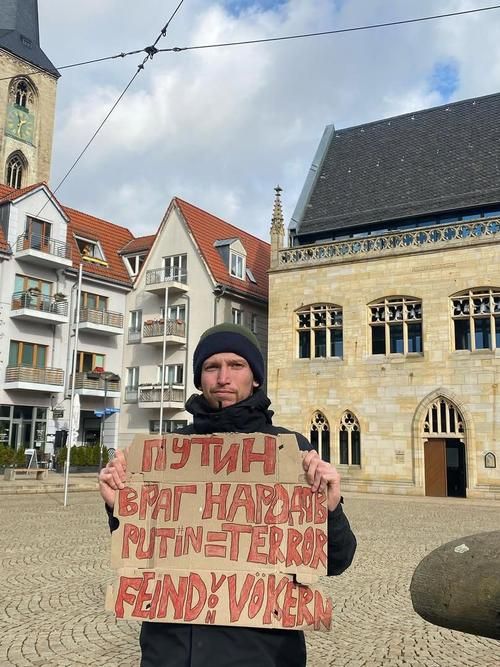 ПУТИН
ВРАГ НАРОДОВ
PUTiN=TERROR
FEiND VON VÖKERN